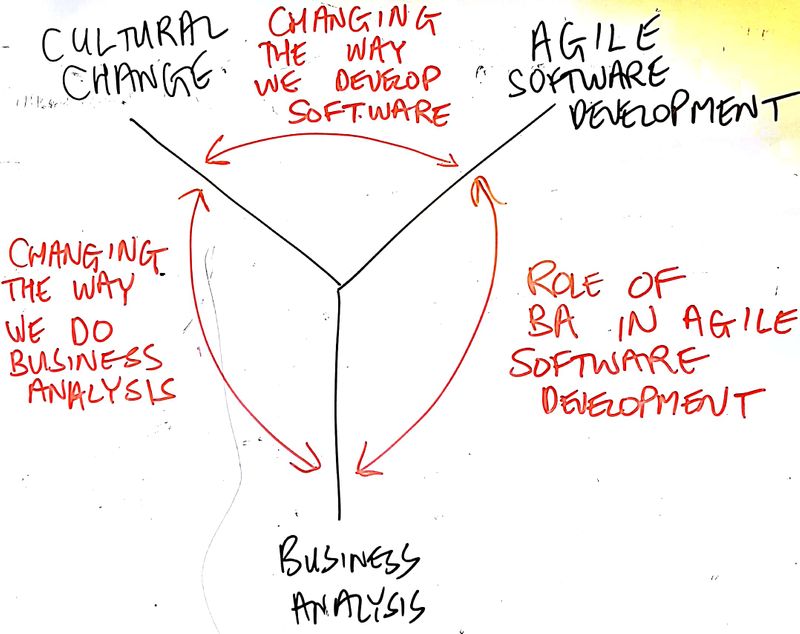 CULTURAL
CHANGE
CHANGING
THE WAY
WE DEVELOP
SOFTWARE
AGILE
SOFTWARE
DEVELOPMENT
CHANGING
THE WAY
WE DO
BUSINESS
ANALYSIS
ROLE OF
BA IN AGILE
SOFTWARE
DEVELOPMENT
BUSINESS
ANALYSIS